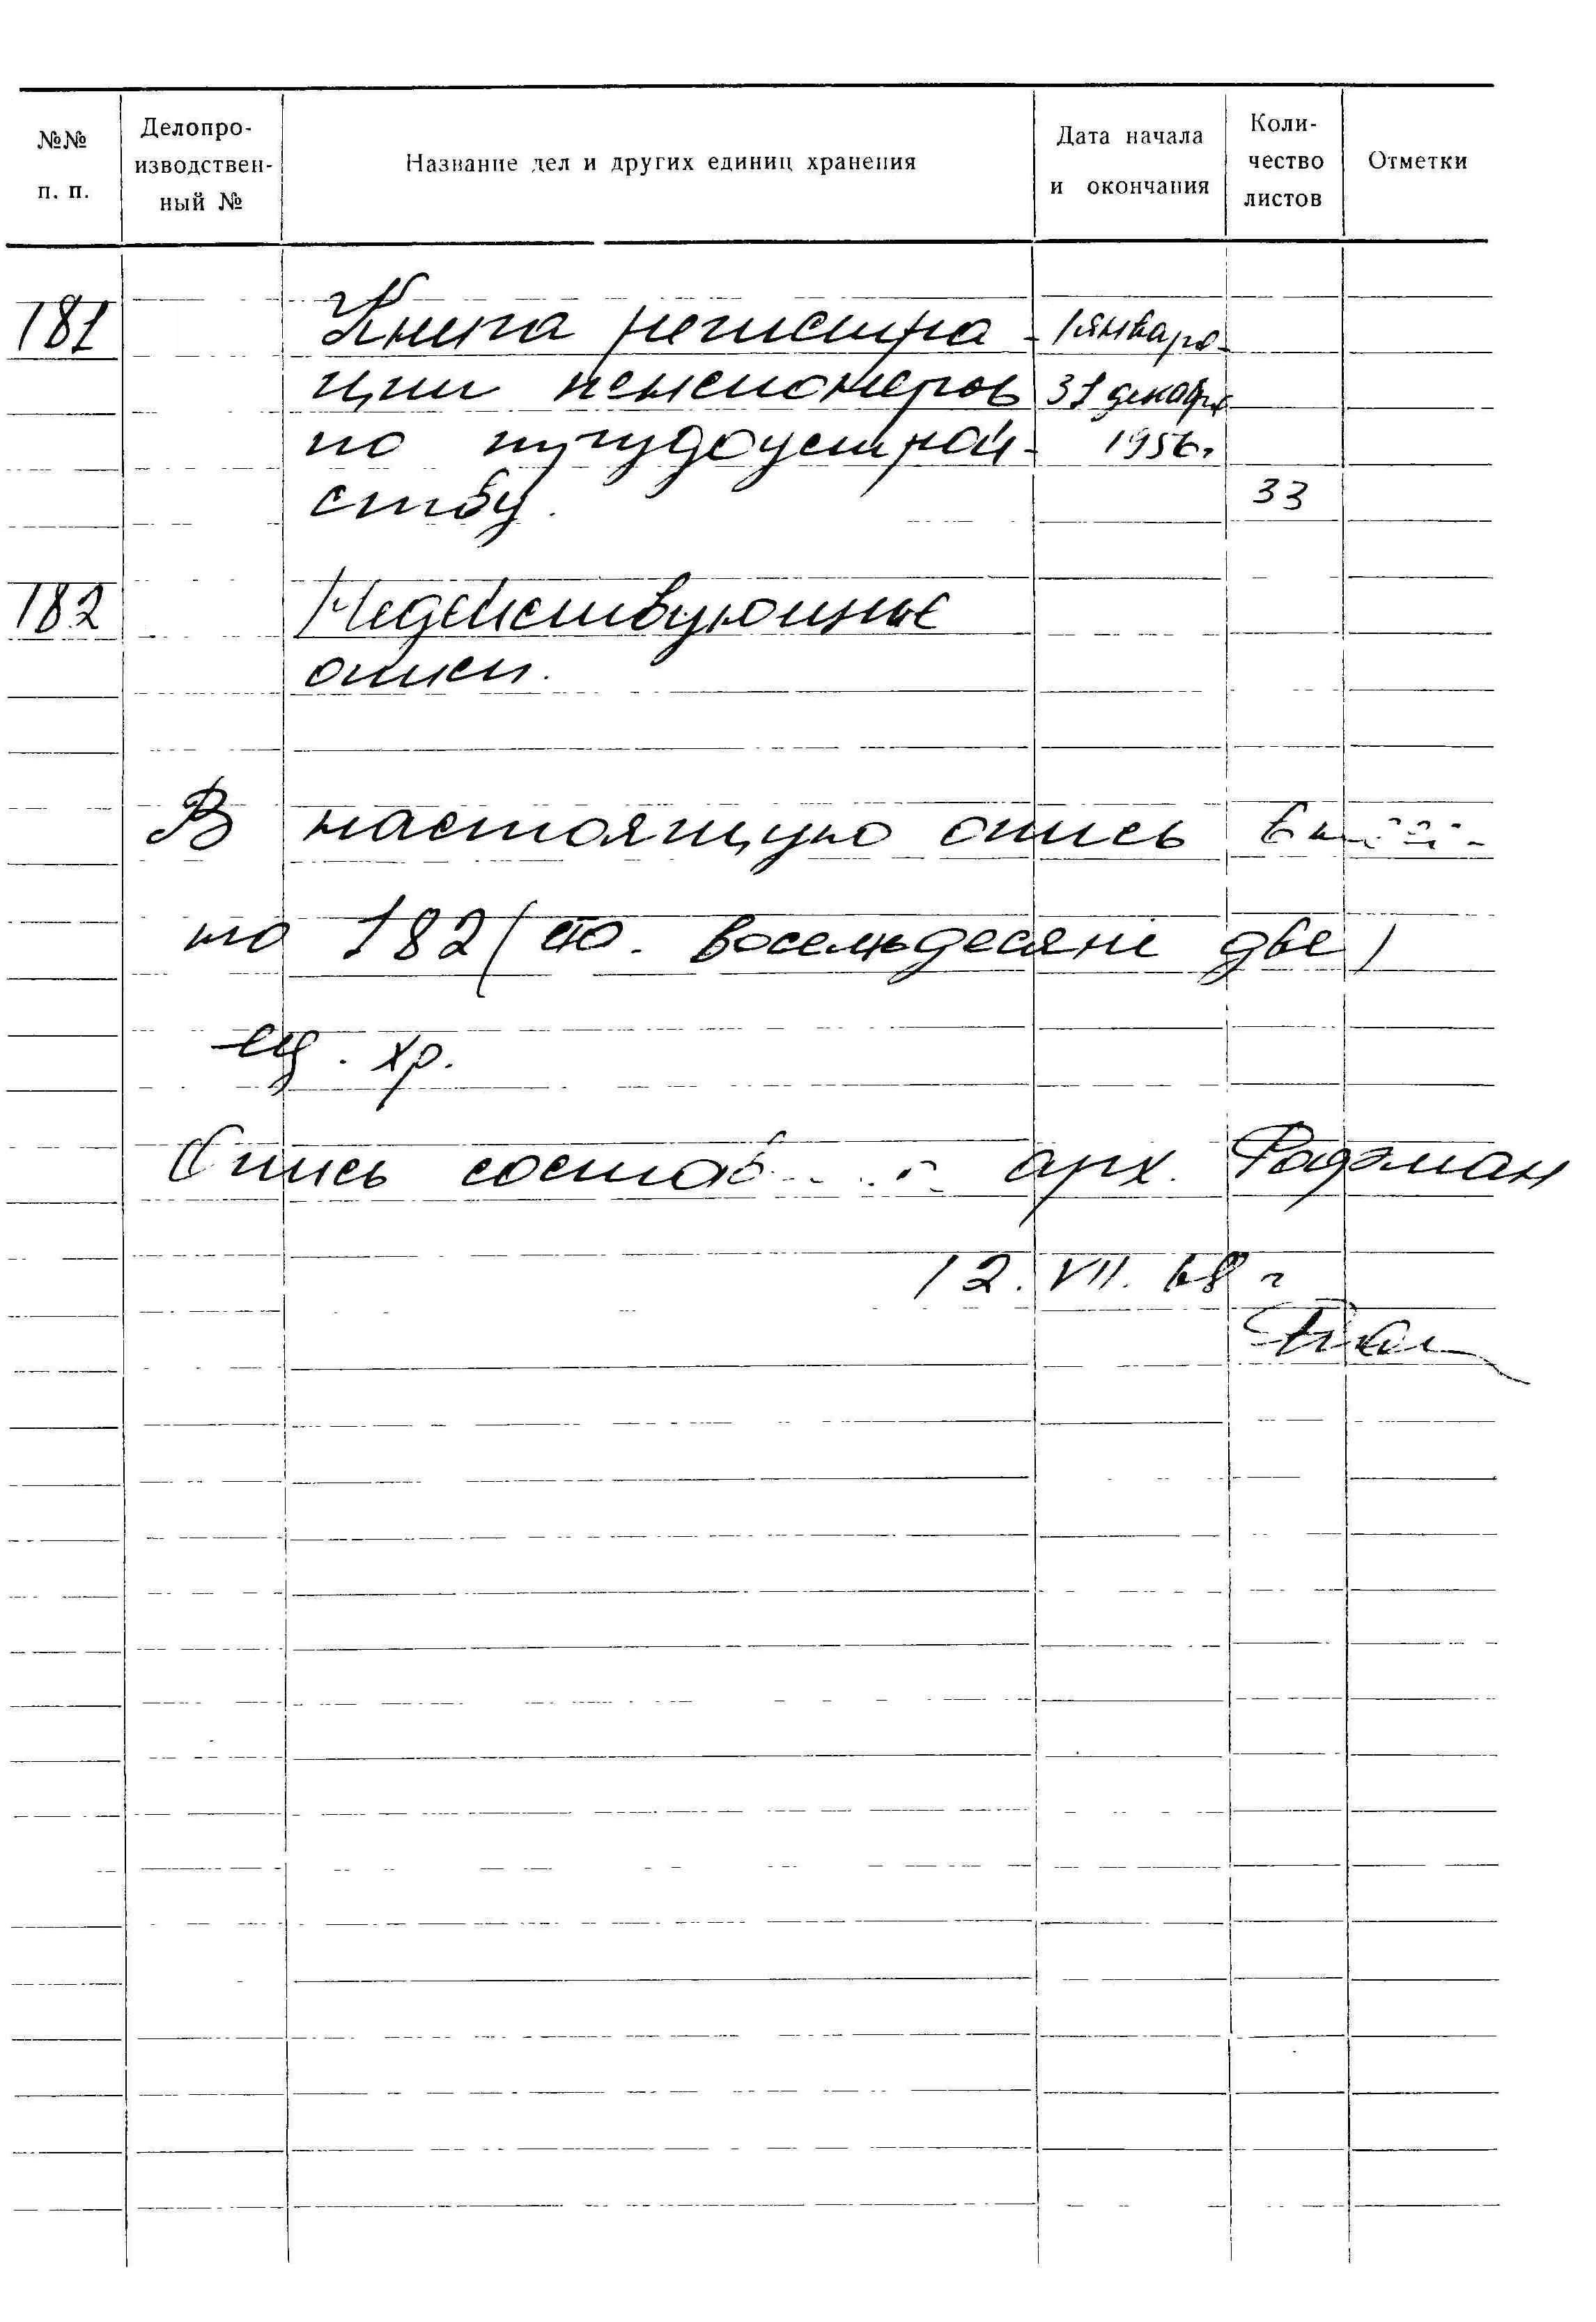 №№ п. п.
Делопро-
изводствен-
ный №
Название дел и других единиц хранения
Дата начала
и окончания
Коли-
чество
листов
Отметки
181 Книга регистра- 1 января-
ции пенсионеров 31 декабря
по трудоустрой- 1956 г.
ству. 33
182 Недействующие
описи.
В настоящую опись
но 182 (сто восемьдесят две)
ед. хр.
Опись арх.
12. VII. 68 г